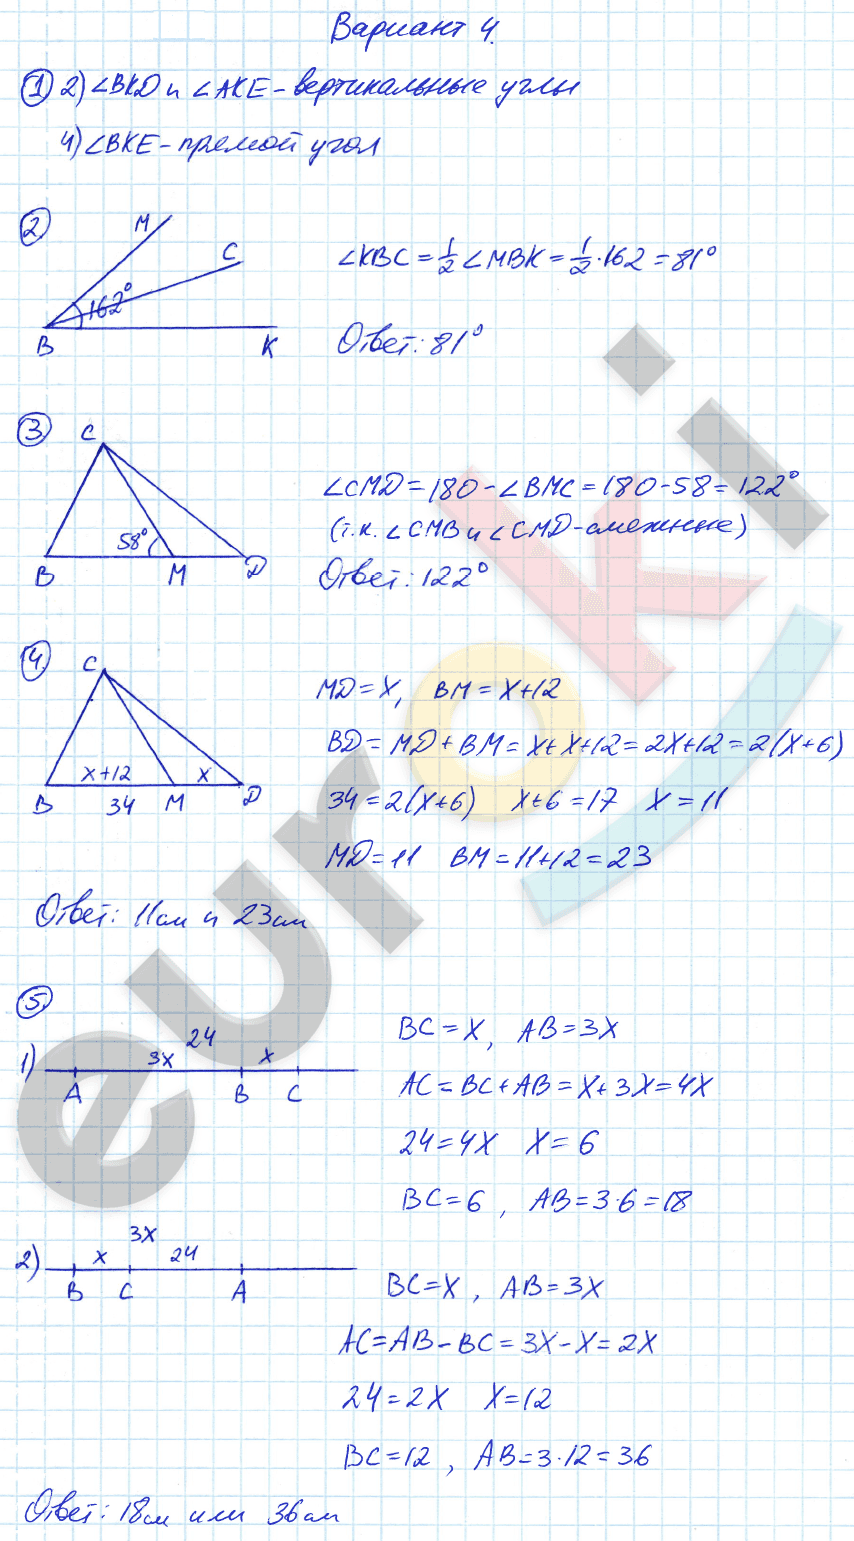 Вариант 4.
① 2) ∠BKD и ∠AKE - вертикальные углы
4) ∠BKE - прямой угол
②
M
C
162°
B
K
∠KBC = 1/2 ∠MBK = 1/2 · 162 = 81°
Ответ: 81°
③
C
58°
B
M
D
∠CMD = 180 - ∠BMC = 180 - 58 = 122°
(т.к. ∠CMB и ∠CMD - смежные)
Ответ: 122°
④
C
x+12
x
B
34
M
D
MD = x, BM = x+12
BD = MD + BM = x + x + 12 = 2x + 12 = 2(x+6)
34 = 2(x+6) x+6 = 17 x = 11
MD = 11 BM = 11+12 = 23
Ответ: 11см и 23см
⑤
1)
24
3x
x
A
B
C
BC = x, AB = 3x
AC = BC + AB = x + 3x = 4x
24 = 4x x = 6
BC = 6, AB = 3·6 = 18
2)
3x
x
24
B
C
A
BC = x, AB = 3x
AC = AB - BC = 3x - x = 2x
24 = 2x x = 12
BC = 12, AB = 3·12 = 36
Ответ: 18см или 36см
euroki